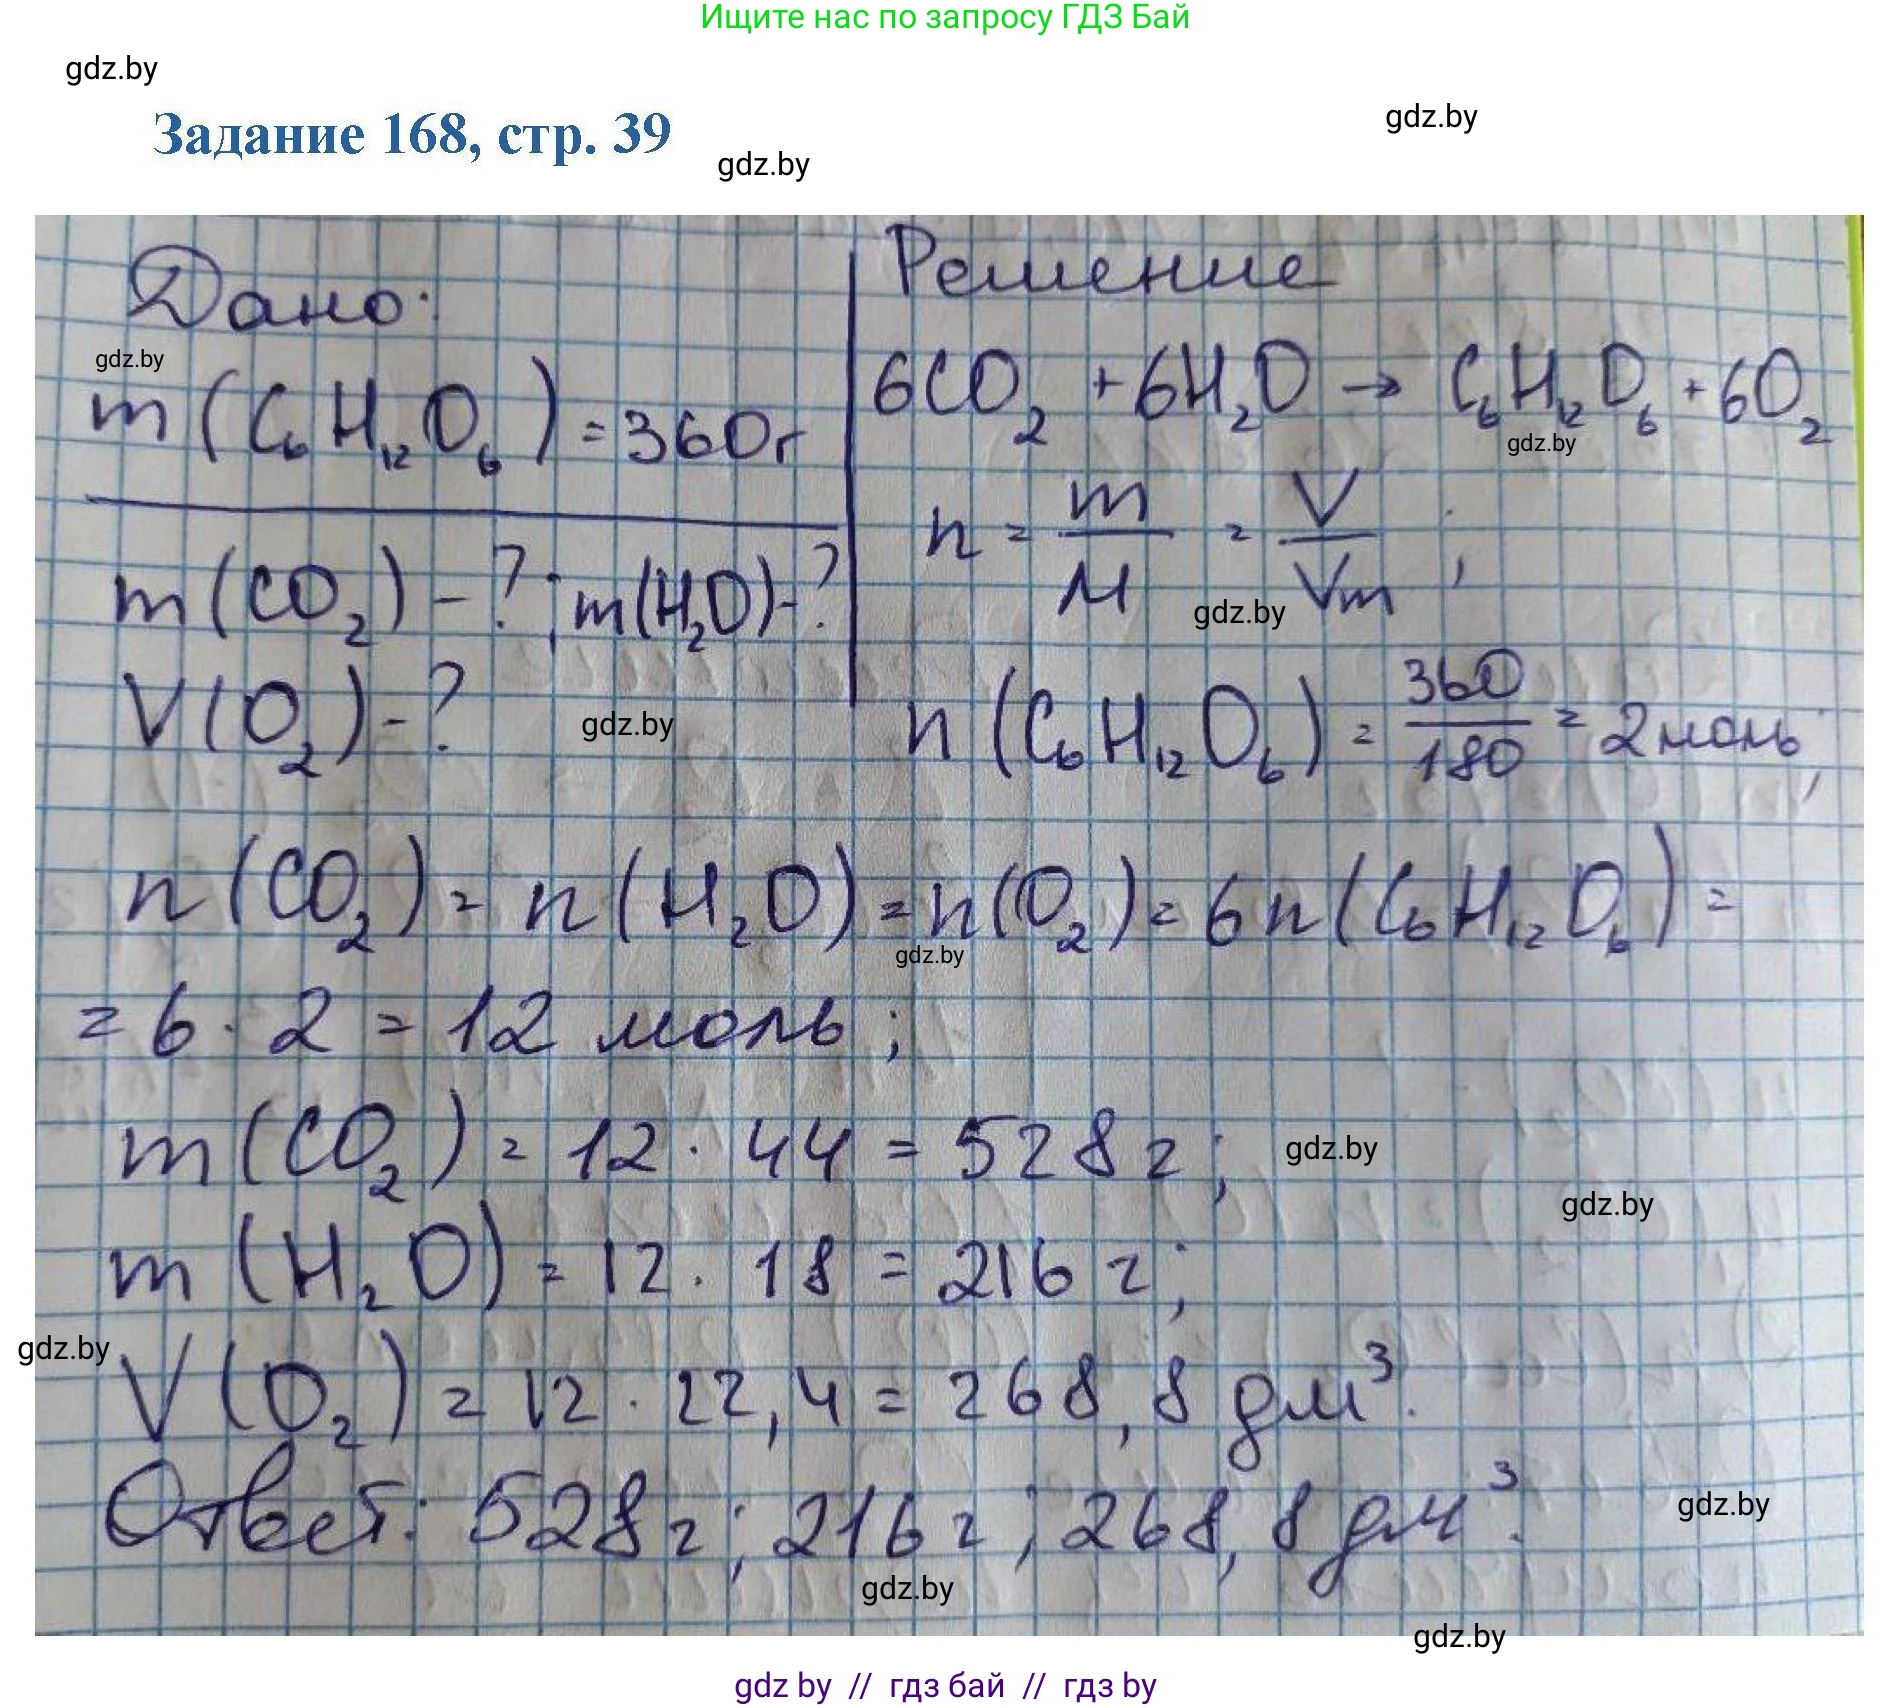 Ищите нас по запросу ГДЗ Бай
gdz.by
gdz.by
Задание 168, стр. 39
gdz.by
Дано:
gdz.by
m(C₆H₁₂O₆) = 360г
m(CO₂) - ?; m(H₂O) - ?
V(O₂) - ?
gdz.by
Решение
6CO₂ + 6H₂O → C₆H₁₂O₆ + 6O₂
gdz.by
n = m/M = V/Vm;
gdz.by
n(C₆H₁₂O₆) = 360/180 = 2 моль;
n(CO₂) = n(H₂O) = n(O₂) = 6n(C₆H₁₂O₆) =
gdz.by
= 6 · 2 = 12 моль;
m(CO₂) = 12 · 44 = 528 г;
gdz.by
gdz.by
m(H₂O) = 12 · 18 = 216 г;
gdz.by
V(O₂) = 12 · 22,4 = 268,8 дм³.
Ответ: 528 г; 216 г; 268,8 дм³.
gdz.by
gdz.by
gdz.by
gdz by // гдз бай // гдз by